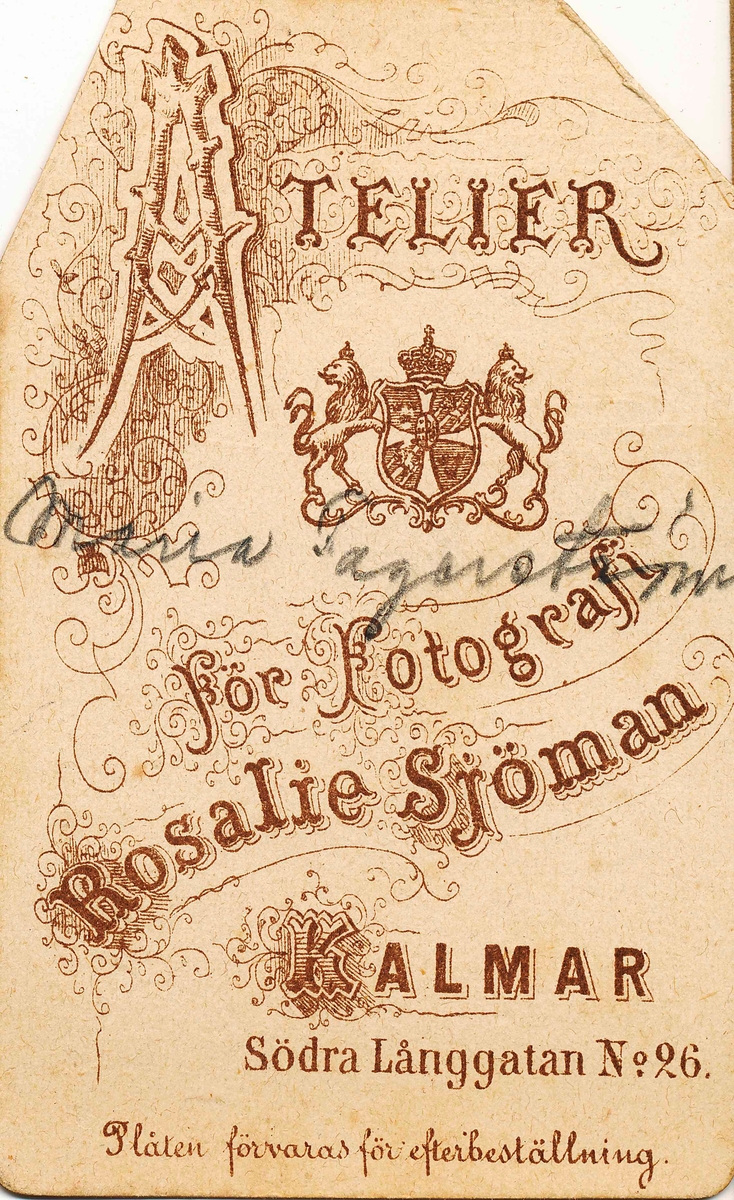 ATELIER
Maria Fagerström
För Fotografi
Rosalie Sjöman
KALMAR
Södra Långgatan No 26.
Plåten förvaras för efterbeställning.